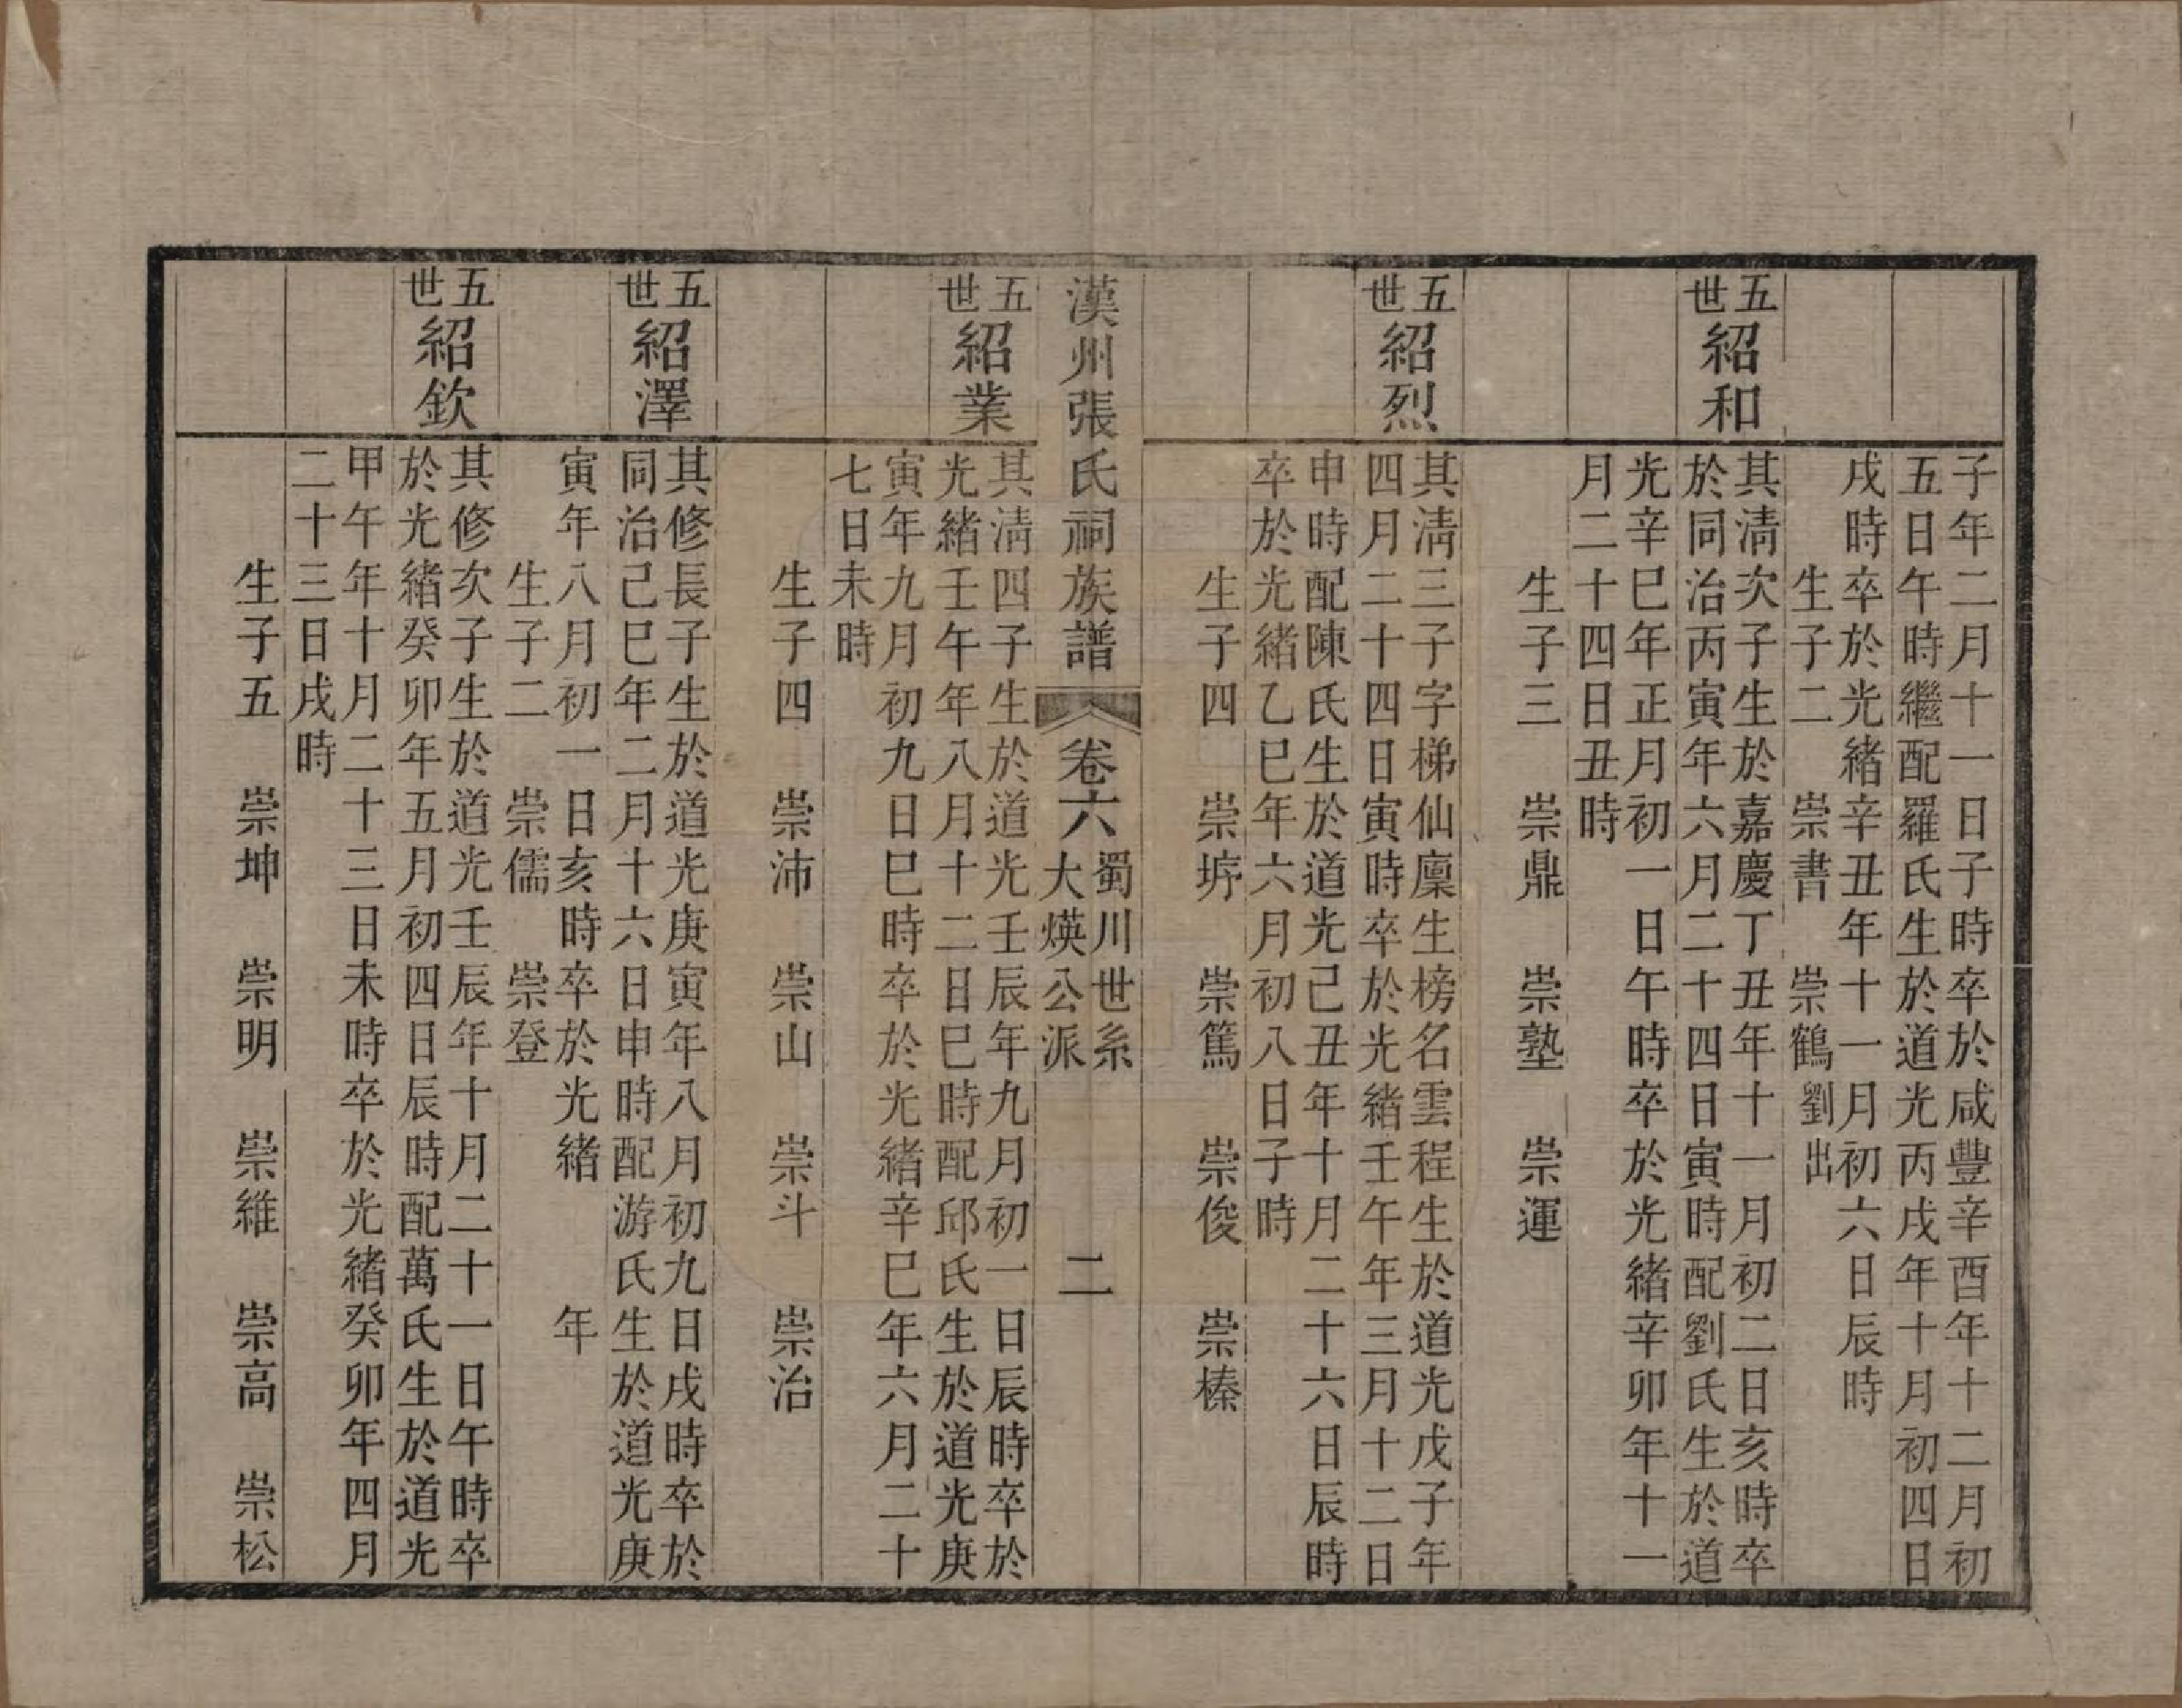 子年二月十一日子時卒於咸豐辛酉年十二月初
五日午時繼配羅氏生於道光丙戌年十月初四日
戌時卒於光緒辛丑年十一月初六日辰時
生子二 崇書 崇鶴劉出
五世紹和
其淸次子生於嘉慶丁丑年十一月初二日亥時卒
於同治丙寅年六月二十四日寅時配劉氏生於道
光辛巳年正月初一日午時卒於光緒辛卯年十一
月二十四日丑時
生子三 崇鼎 崇塾 崇運
五世紹烈
其淸三子字梯仙廩生榜名雲程生於道光戊子年
四月二十四日寅時卒於光緒壬午年三月十二日
申時配陳氏生於道光己丑年十月二十六日辰時
卒於光緒乙巳年六月初八日子時
生子四 崇垿 崇篤 崇俊 崇榛
漢州張氏祠族譜 卷六 蜀川世系 大煐公派 二
五世紹業
其淸四子生於道光壬辰年九月初一日辰時卒於
光緒壬午年八月十二日巳時配邱氏生於道光庚
寅年九月初九日巳時卒於光緒辛巳年六月二十
七日未時
生子四 崇沛 崇山 崇斗 崇治
五世紹澤
其修長子生於道光庚寅年八月初九日戌時卒於
同治己巳年二月十六日申時配游氏生於道光庚
寅年八月初一日亥時卒於光緒 年
生子二 崇儒 崇登
五世紹欽
其修次子生於道光壬辰年十月二十一日午時卒
於光緒癸卯年五月初四日辰時配萬氏生於道光
甲午年十月二十三日未時卒於光緒癸卯年四月
二十三日戌時
生子五 崇坤 崇明 崇維 崇高 崇松